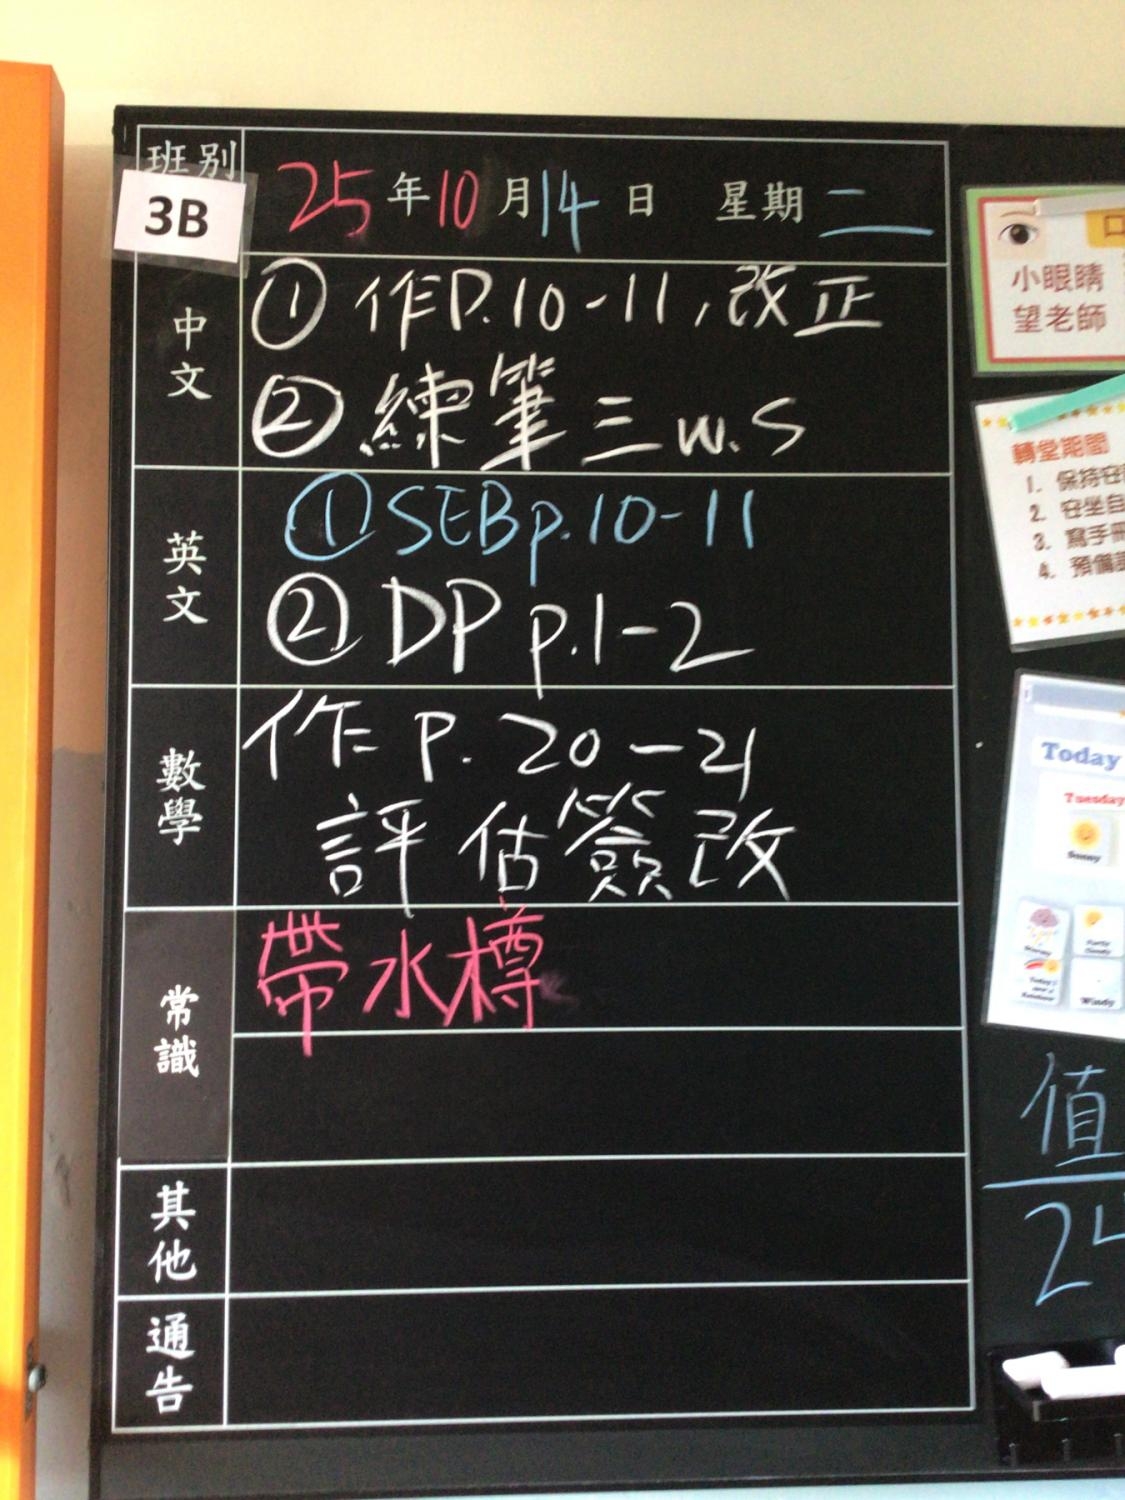 班別
3B
25年10月14日 星期二
中文
① 作P.10-11,改正
② 練筆三 W.S
英文
① SEB p.10-11
② DP p.1-2
數學
作 P. 20-21
評估簽改
常識
帶水樽
其他
通告
小眼睛
望老師
轉堂期間
1. 保持安
2. 安坐自
3. 寫手冊
4. 預備
Today
Tuesday
Sunny
Windy
值